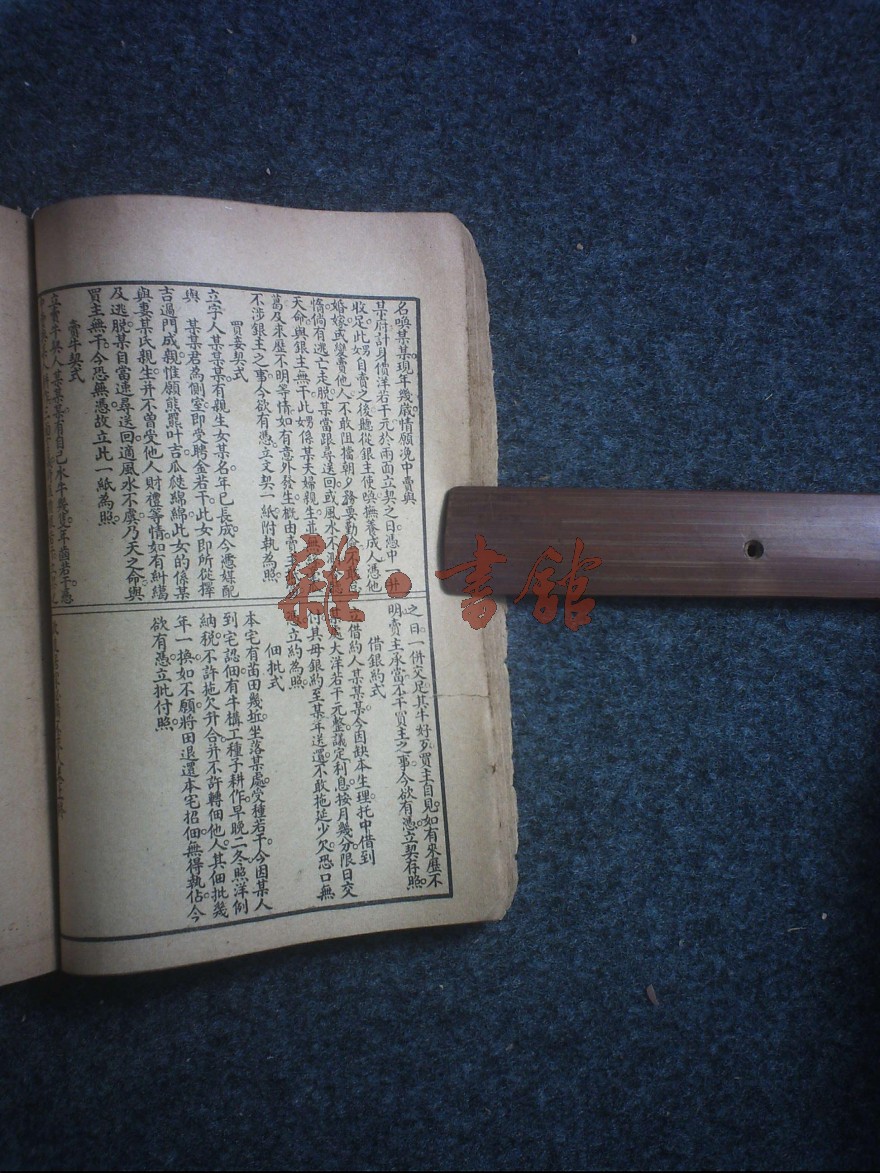 名喚某某現年幾歲情願浼中賣與
某府計身價洋若干元於兩面立契之日憑中
收足此婢自賣之後聽從銀主使喚撫養成人憑他
婚嫁或變賣他人不敢阻擋朝夕務要勤
惰倘有逃亡走脫某當跟尋送回或風水不
天命與銀主無干此婢係某夫婦親生並無
葛及來歷不明等情如有意外發生概由賣主
不涉銀主之事今欲有憑立文契一紙附執為照
買妾契式
立字人某某某有親生女某名年已長成今憑媒配
與某某君為側室即受聘金若干此女即所從擇
吉過門成親惟願熊羆叶吉瓜瓞綿綿此女的係某
與妻某氏親生并不曾受他人財禮等情如有糾葛
及逃脫某自當速尋送回適風水不虞乃天之命與
買主無干今恐無憑故立此一紙為照
賣牛契式
立賣牛契人某某某有自己水牛幾隻年齒若干憑
之日一併交足其牛好歹買主自見如有來歷不
明賣主承當不干買主之事今欲有憑立契存照
借銀約式
立借約人某某某今因缺本生理托中借到
某處大洋若干元整議定利息按月幾分限日交
付其母銀約至某年送還不敢拖延少欠恐口無
憑立約為照
佃批式
本宅有苗田幾坵坐落某處受種若干今因某人
到宅認佃有牛構工種子耕作早晚二冬照洋例
納稅不許拖欠升合并不許轉佃他人其佃批幾
年一換如不願將田退還本宅招佃無得執佔今
欲有憑立批付照
雜·書館